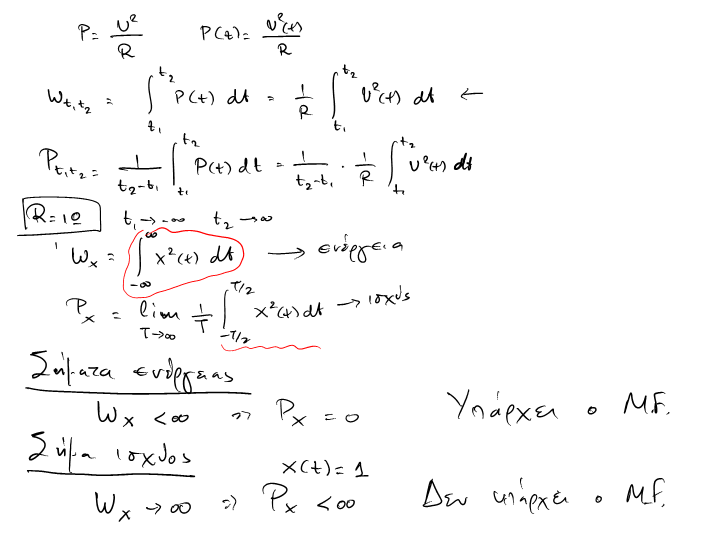 P = υ²/R    P(t) = υ²(t)/R
W_{t₁t₂} = ∫_{t₁}^{t₂} P(t) dt = 1/R ∫_{t₁}^{t₂} υ²(t) dt ←
P_{t₁t₂} = 1/(t₂-t₁) ∫_{t₁}^{t₂} P(t) dt = 1/(t₂-t₁) · 1/R ∫_{t₁}^{t₂} υ²(t) dt
R=1Ω    t₁→-∞    t₂→∞
W_x = ∫_{-∞}^{∞} x²(t) dt ⟶ ενέργεια
P_x = lim_{T→∞} 1/T ∫_{-T/2}^{T/2} x²(t) dt → ισχύς
Σήματα ενέργειας
W_x < ∞ ⇒ P_x = 0    Υπάρχει ο M.F.
Σήμα ισχύος    x(t) = 1
W_x → ∞ ⇒ P_x < ∞    Δεν υπάρχει ο M.F.